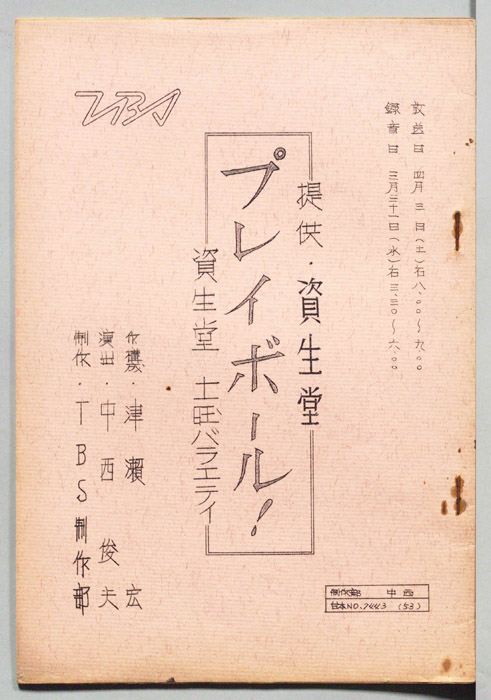 放送日 四月三日(土)后八、〇〇〜九、〇〇
録音日 三月三十一日(水)后三、三〇〜六、〇〇
TBS
提供・資生堂
プレイボール!
資生堂 土旺バラエティ
津瀬 宏
演出・中西俊夫
制作・TBS制作部
制作部 中西
台本NO.7443 (53)